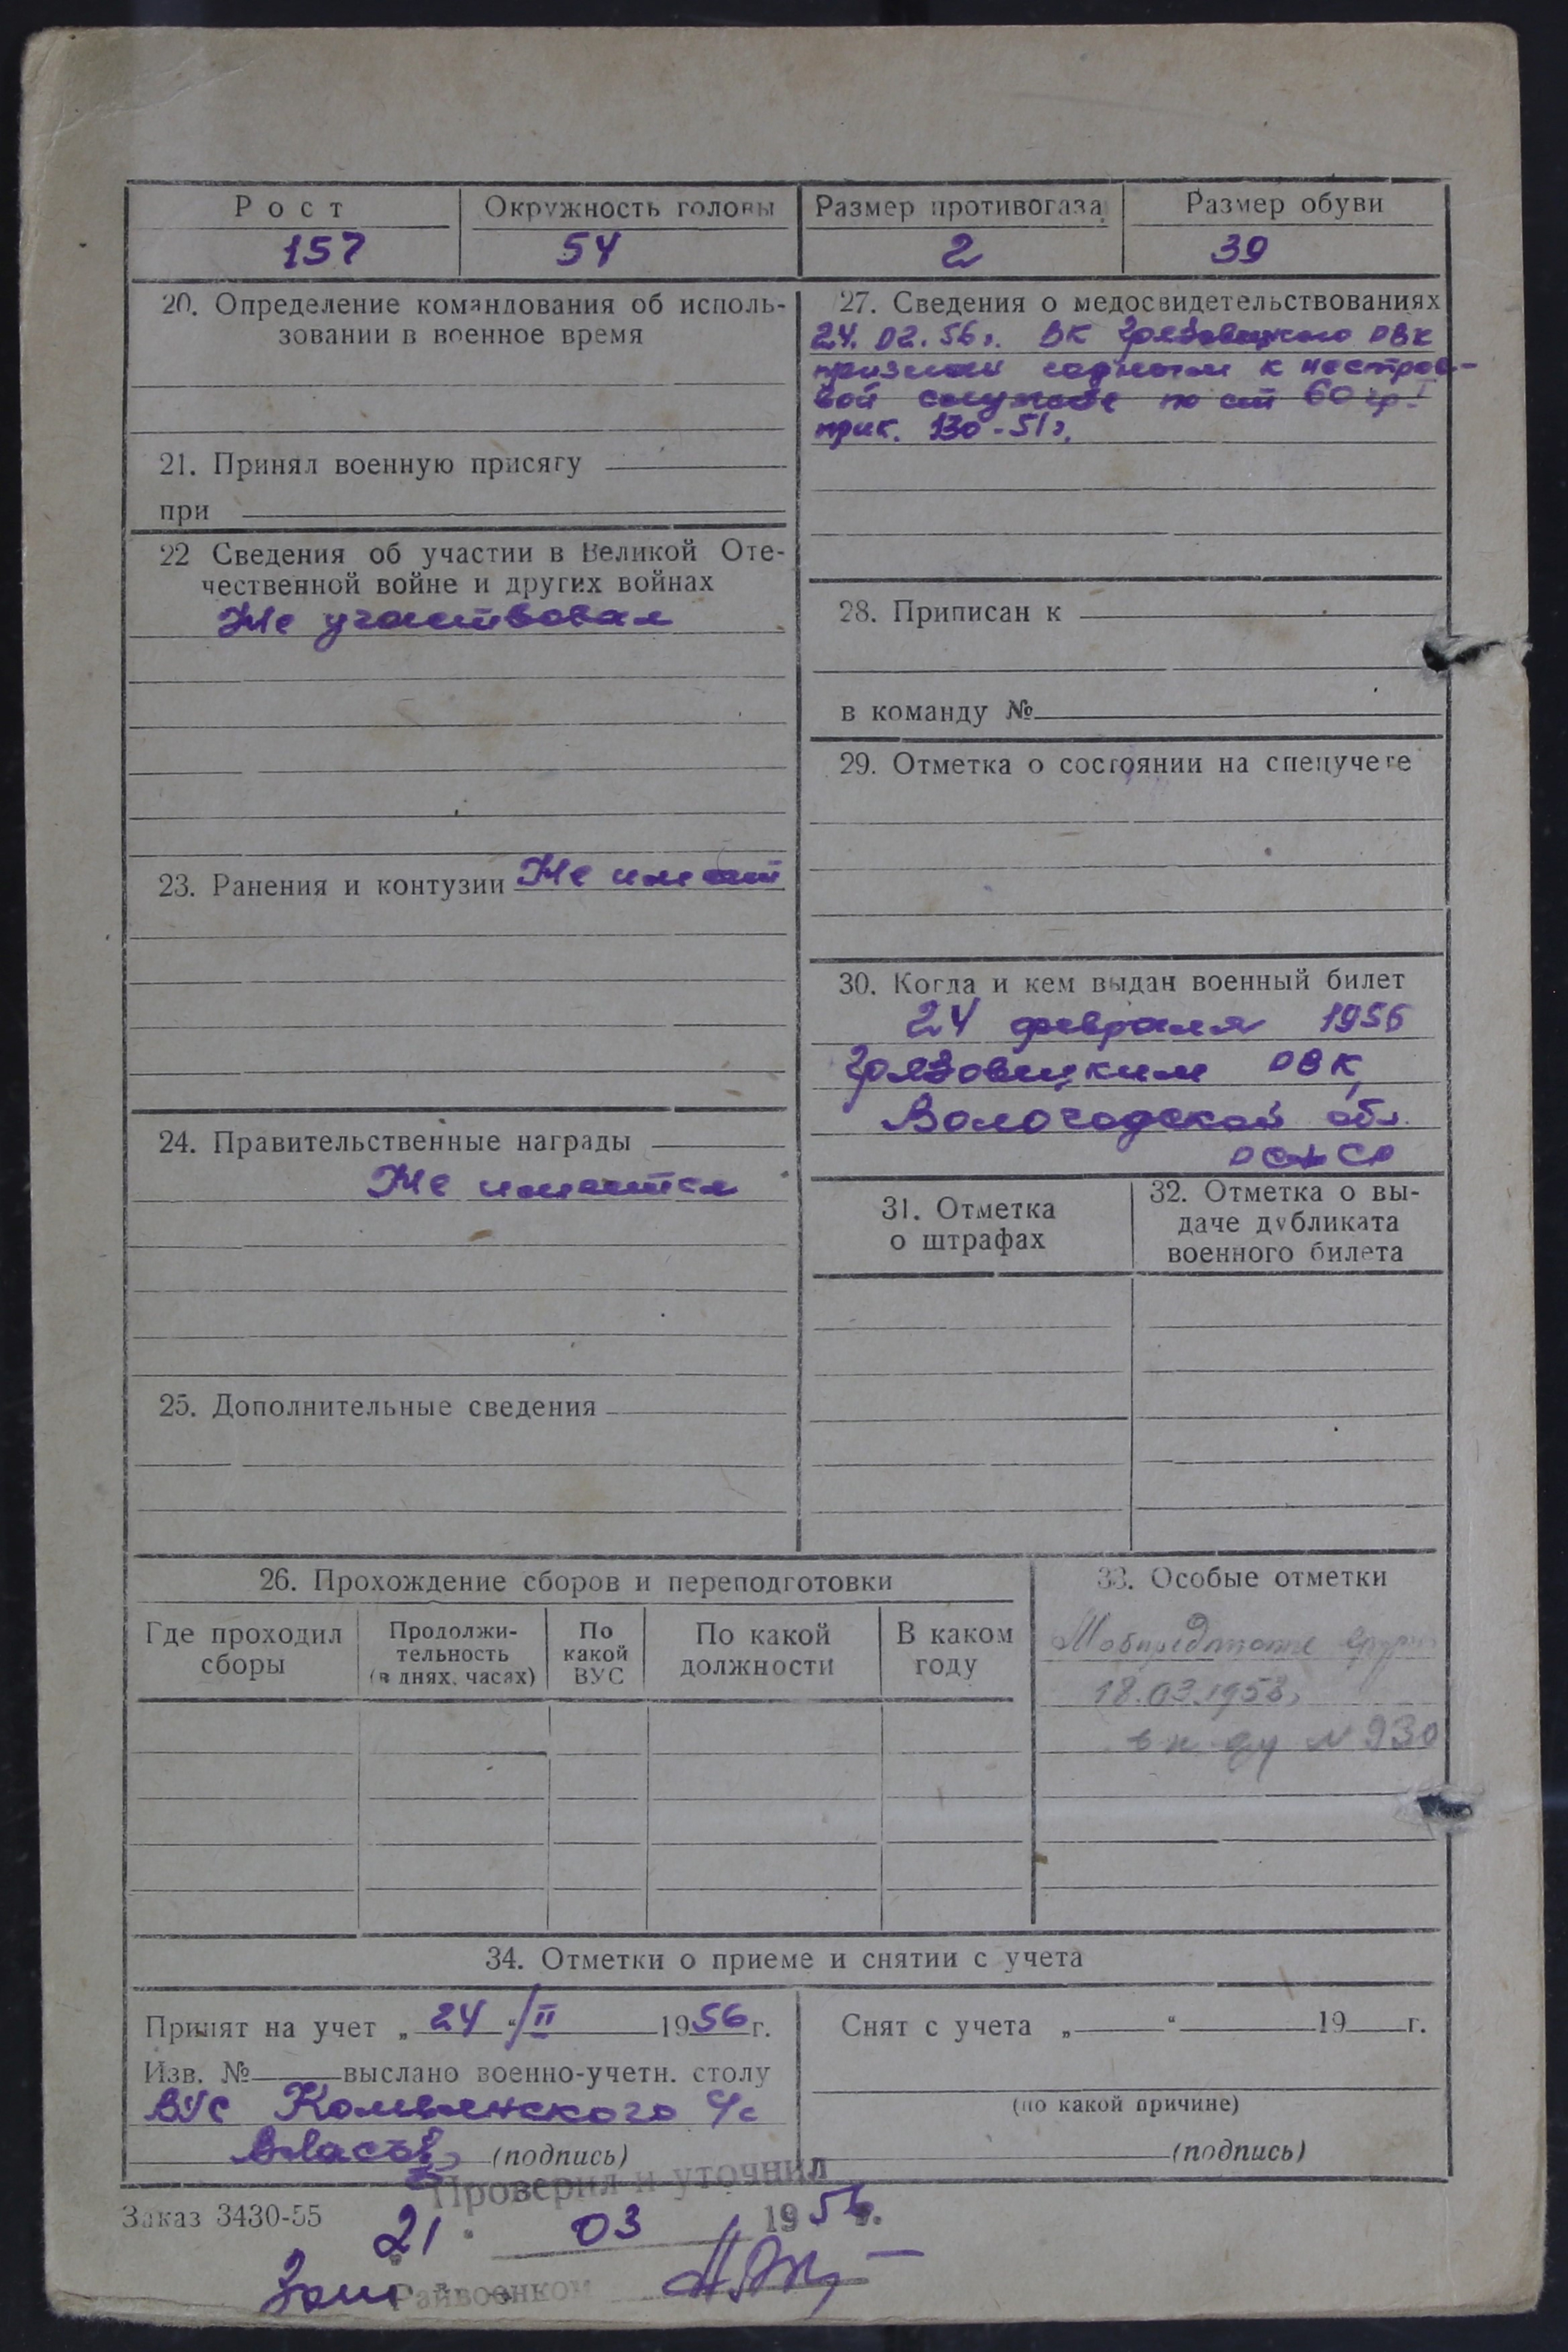 Рост
157
Окружность головы
54
Размер противогаза
2
Размер обуви
39
20. Определение командования об исполь-
зовании в военное время
21. Принял военную присягу
при
22 Сведения об участии в Великой Оте-
чественной войне и других войнах
Не участвовал
23. Ранения и контузии Не имеет
24. Правительственные награды
Не имеются
25. Дополнительные сведения
27. Сведения о медосвидетельствованиях
24. 02. 56г. ВК Грязовецкого РВК
признан годным к нестрое-
вой службе по ст 60 гр. I
прик. 130-51г.
28. Приписан к
в команду №
29. Отметка о состоянии на спецучете
30. Когда и кем выдан военный билет
24 февраля 1956
Грязовецким РВК
Вологодской обл.
РСФСР
31. Отметка
о штрафах
32. Отметка о вы-
даче дубликата
военного билета
26. Прохождение сборов и переподготовки
Где проходил
сборы
Продолжи-
тельность
(в днях, часах)
По
какой
ВУС
По какой
должности
В каком
году
33. Особые отметки
18.03.1958г
N 930
34. Отметки о приеме и снятии с учета
Принят на учет „ 24 “ II 1956 г.
Изв. № выслано военно-учетн. столу
ВУС с/с
(подпись)
Снят с учета „ “ 19 г.
(по какой причине)
(подпись)
Проверил и уточнил
Заказ 3430-55
21 03 1956.
Зам Райвоенком